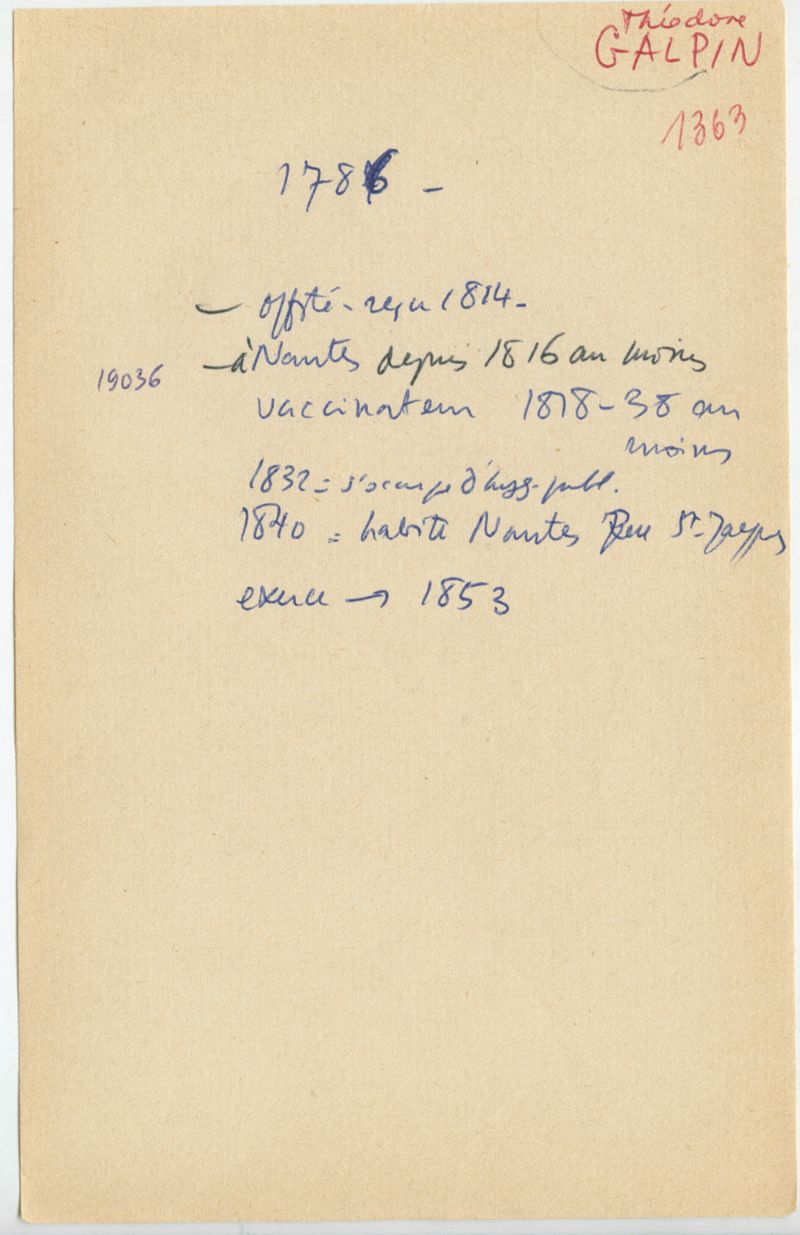 Théodore
GALPIN
1363
1786 -
- offté - reçu 1814 -
19036
- à Nantes depuis 1816 au moins
vaccinateur 1818-38 au
moins
1832 = s'occupe d'hyg. publ.
1840 = habite Nantes Rue St-Jacques
exerce → 1853